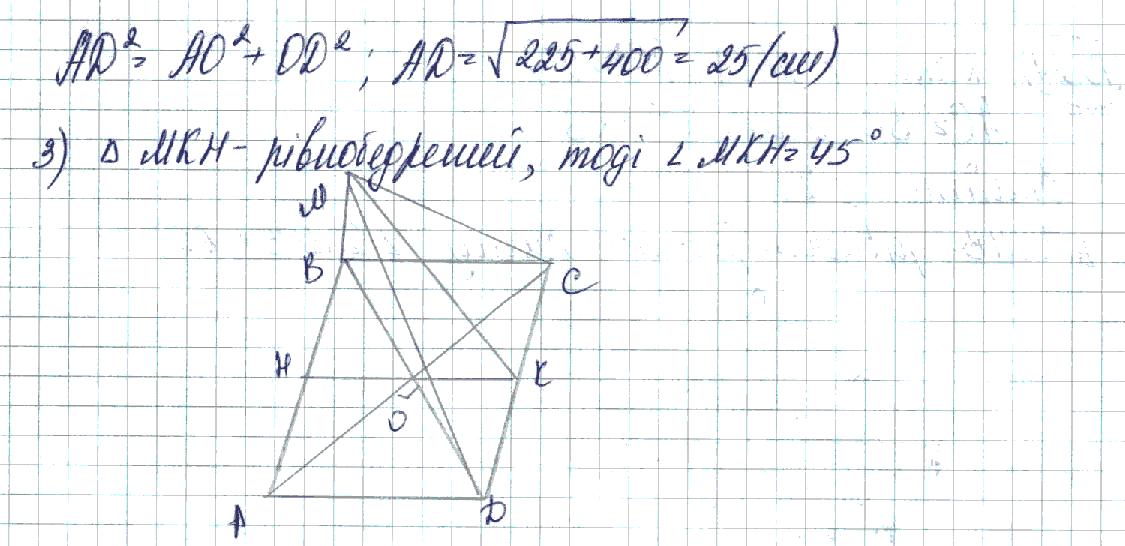 AD² = AO² + OD² ; AD = √225+400 = 25 (см)
3) Δ МКН - рівнобедрений, тоді ∠ МКН = 45°
M
B
C
H
K
O
A
D